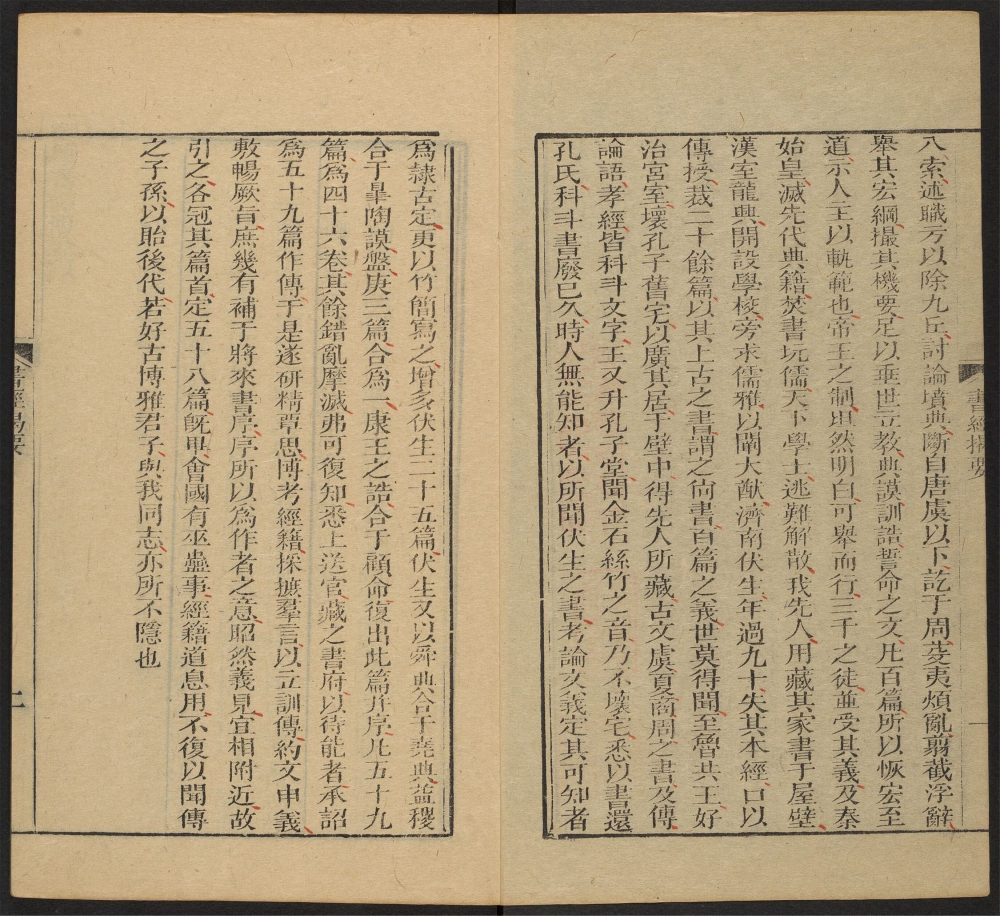 八索述職方以除九丘討論墳典斷自唐虞以下訖于周芟夷煩亂翦截浮辭
舉其宏綱撮其機要足以垂世立教典謨訓誥誓命之文凡百篇所以恢宏至
道示人主以軌範也帝王之制坦然明白可舉而行三千之徒並受其義及秦
始皇滅先代典籍焚書坑儒天下學士逃難解散我先人用藏其家書于屋壁
漢室龍興開設學校旁求儒雅以闡大猷濟南伏生年過九十失其本經口以
傳授裁二十餘篇以其上古之書謂之尚書百篇之義世莫得聞至魯共王好
治宮室壞孔子舊宅以廣其居于壁中得先人所藏古文虞夏商周之書及傳
論語孝經皆科斗文字王又升孔子堂聞金石絲竹之音乃不壞宅悉以書還
孔氏科斗書廢已久時人無能知者以所聞伏生之書考論文義定其可知者
書經揭要
一
爲隸古定更以竹簡寫之增多伏生二十五篇伏生又以舜典合于堯典益稷
合于臯陶謨盤庚三篇合爲一康王之誥合于顧命復出此篇并序凡五十九
篇爲四十六卷其餘錯亂摩滅弗可復知悉上送官藏之書府以待能者承詔
爲五十九篇作傳于是遂研精覃思博考經籍採摭羣言以立訓傳約文申義
敷暢厥旨庶幾有補于將來書序序所以爲作者之意昭然義見宜相附近故
引之各冠其篇首定五十八篇旣畢會國有巫蠱事經籍道息用不復以聞傳
之子孫以貽後代若好古博雅君子與我同志亦所不隱也
書經揭要